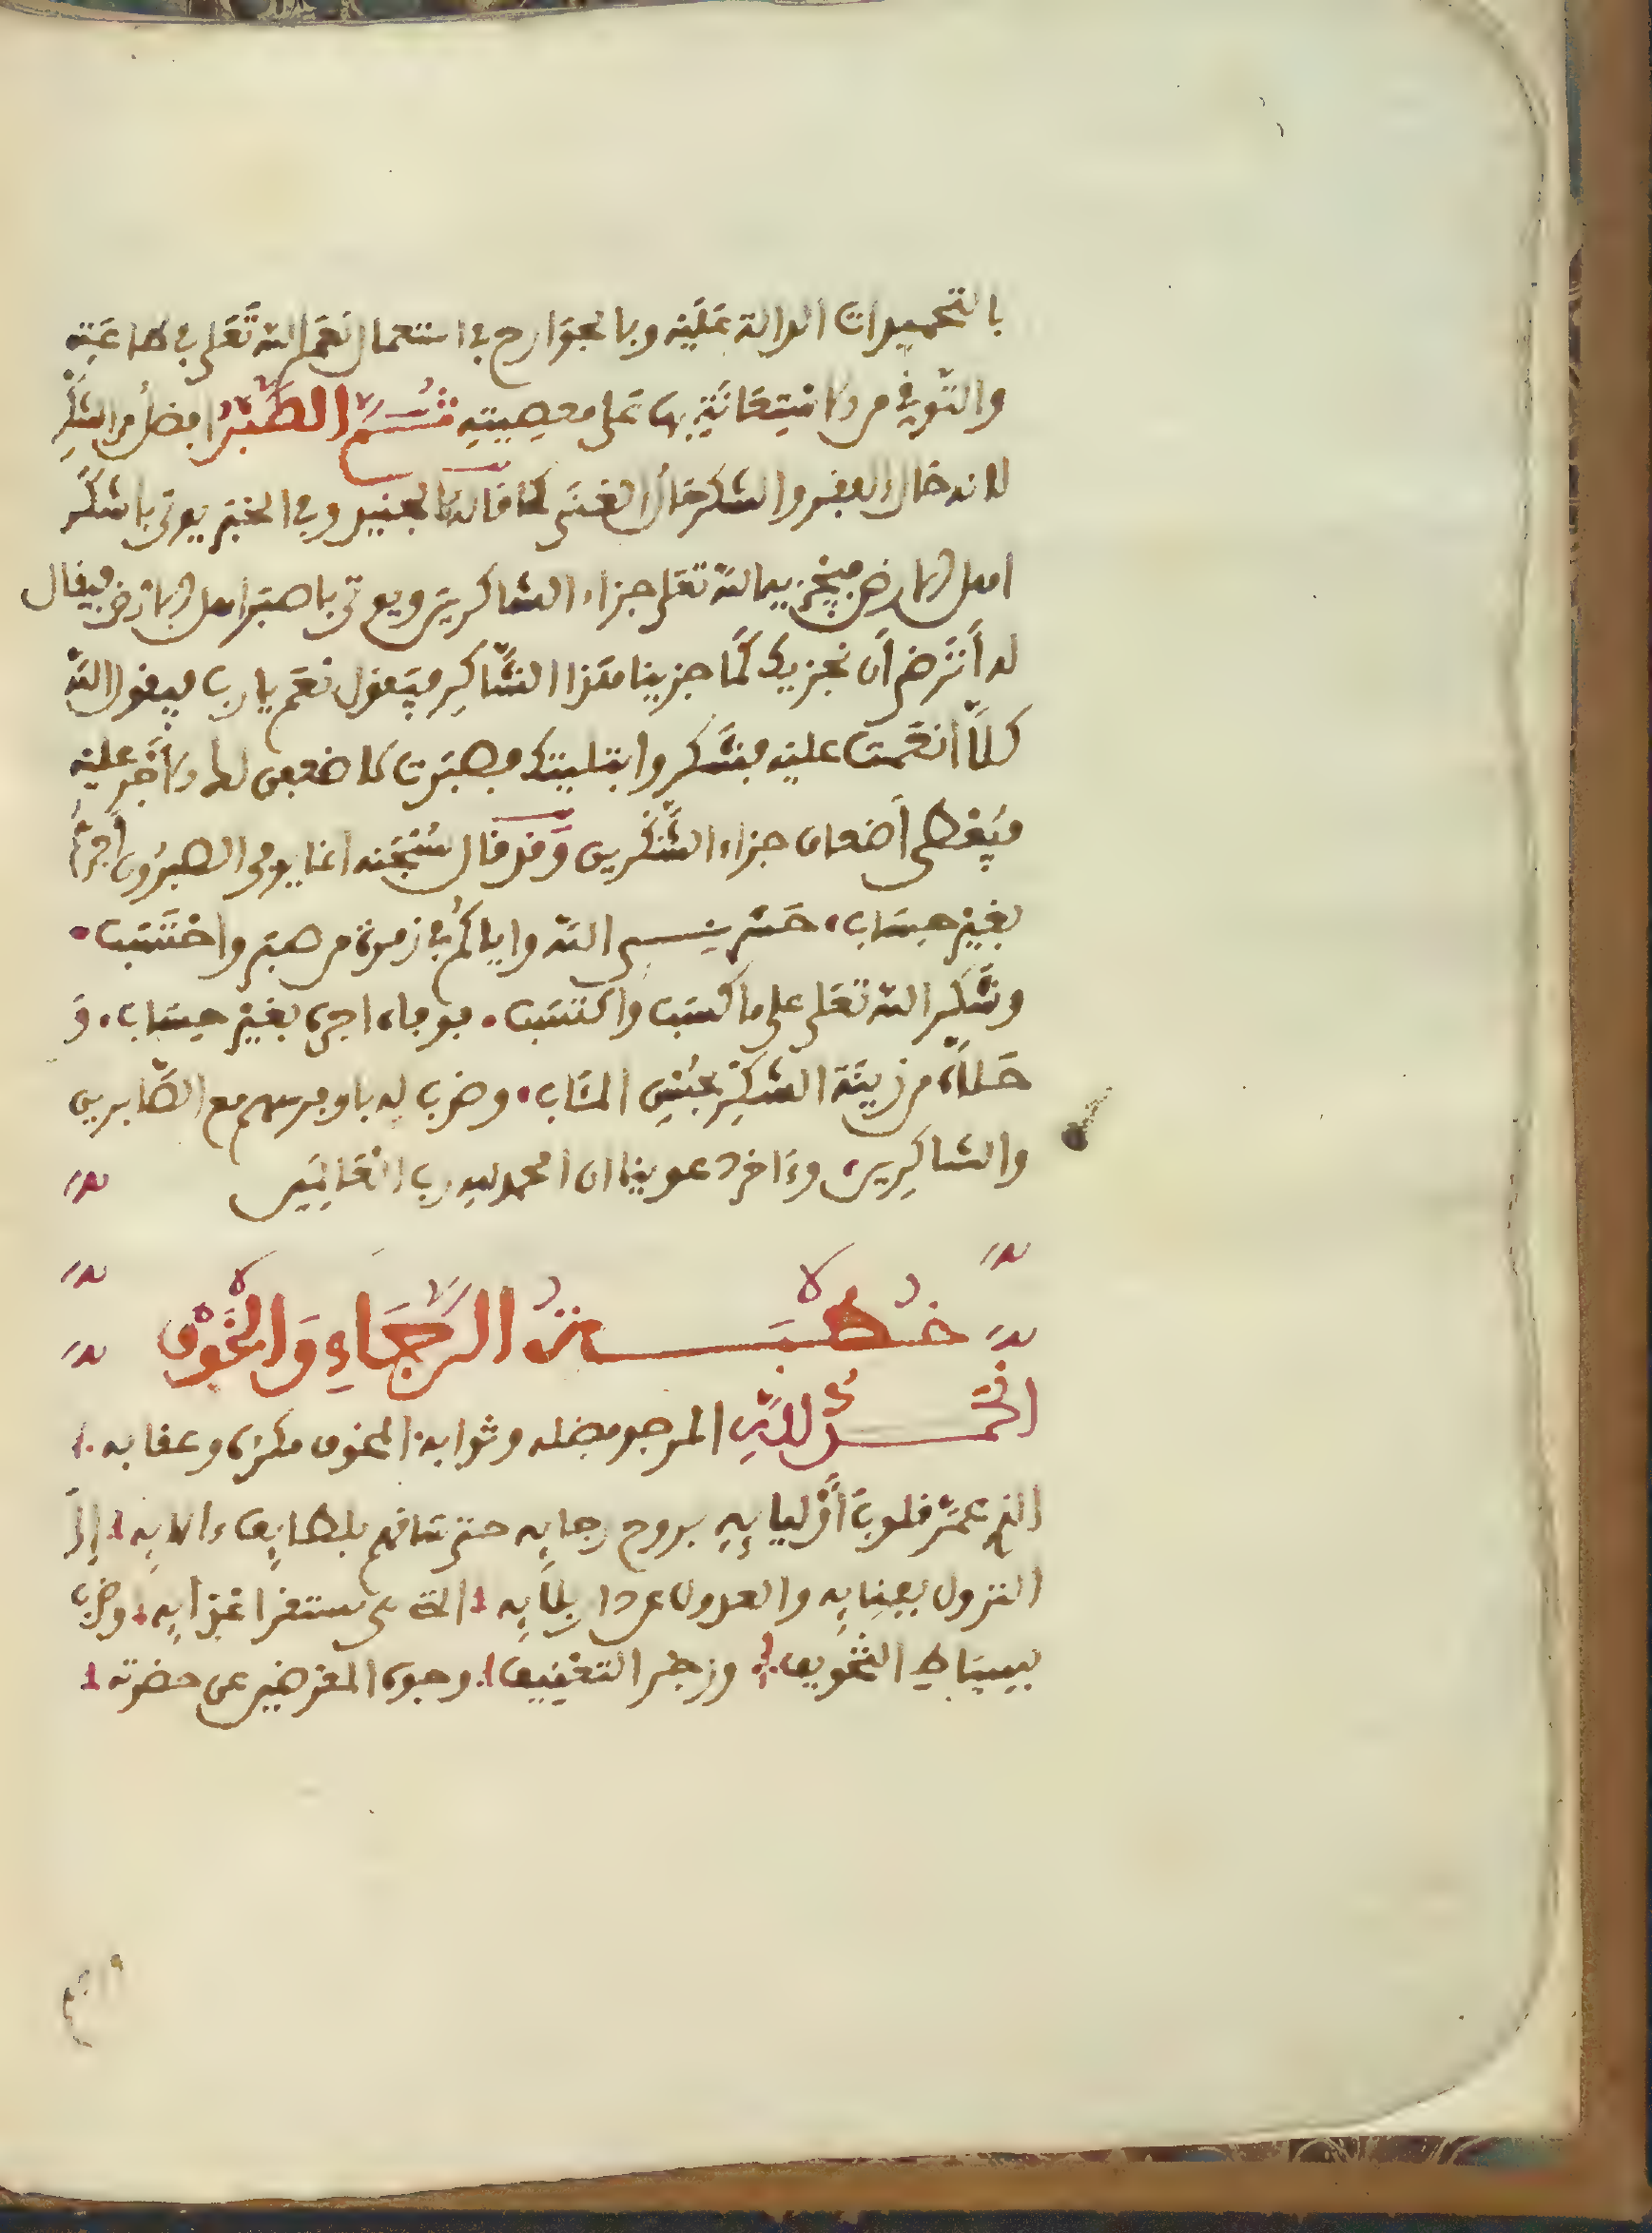 بالتحميدات الدالة عَلَيْه وبالجوَارح في استعمال نعَم الله تَعَلى في طاعَتِه
والتَّوقي من الاسْتِعَانَةِ بها عَلى معصِيتِه ثُمَّ الصَّبْرُ افضلُ من الشكْرِ
لانه حَال الفقر والشكر حَالُ الغنَى كمَا قاله الجنيد وفي الخبَر يوتى باشكَر
اهل الارض فيجْزيه الله تعَلى جزاء الشاكرينَ ويوتى باصبَر اهل الارض فيقال
له أتَرْضى أن نجزيك كمَا جزينا هَذا الشَّاكِر فيَقول نعَم يا رب فيقول الله
كلاَّ انعَمت عليْه فشَكر وابتليتك فصبَرت لاضعفن لك الاجْر عليْه
فيُعْطى أضعاف جزاء الشَّكرين وَقد قال سُبْحَنه انما يوفى الصبرُون أجْرَهُم
بغيْر حِسَاب، حَشرنِــي الله واياكُم في زمرة من صبَر واحْتَسَبَ.
وشَكر الله تعَلى على ما كسَبَ واكتسَبَ. فوفاه اجره بغيْر حِسَاب. وَ
حَلاَّه من زينَة الشكرِ بحُسْنِ المَئَاب، وضرب له باوفر سهم مع الصَّابرين
والشاكِرِين، وءَاخر دعوينا ان الحمد لله رب العَالمِين
خُطْبَــــةُ الرَّجَاءِ وَالخَوْفِ
الحَمْــــدُ لِلَّهِ المرجو فضله وثوابه المخوف مكره وعقابه
الذي عمَّر قلوبَ أوْليائِهِ بروح رجايِه حتى ساقهم بلطايِف ءالايِه إلى
النزول بفِنايِه والعدول عن دار بلاَيِه التي هي مستقر اعْدايِه وضرب
بِسِيَاطِ التخْوِيف وزجر التعْنِيف وجوه المعْرضِين عن حضرته